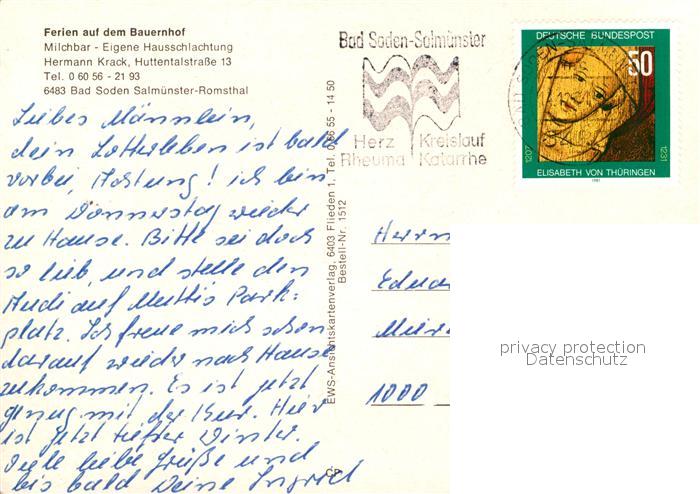 Ferien auf dem Bauernhof
Milchbar - Eigene Hausschlachtung
Hermann Krack, Huttentalstraße 13
Tel. 0 60 56 - 21 93
6483 Bad Soden Salmünster-Romsthal
Liebes Männlein,
dein Lotterleben ist bald
vorbei, Achtung! ich bin
am Donnerstag wieder
zu Hause. Bitte sei doch
so lieb, und stelle den
Audi auf Muttis Park-
platz. Ich freue mich schon
darauf wieder nach Hause
zukommen. Es ist jetzt
genug mit der Kur. Hier
ist jetzt tiefter Winter.
Viele liebe Grüße und
bis bald Deine Ingrid
EWS-Ansichtskartenverlag, 6403 Flieden 1, Tel. 0 66 55 - 14 50
Bestell-Nr. 1512
CP
Bad Soden-Salmünster
Herz Kreislauf
Rheuma Katarrhe
DEUTSCHE BUNDESPOST
50
1207
1231
ELISABETH VON THÜRINGEN
1981
Herrn
Edua
1000
privacy protection
Datenschutz